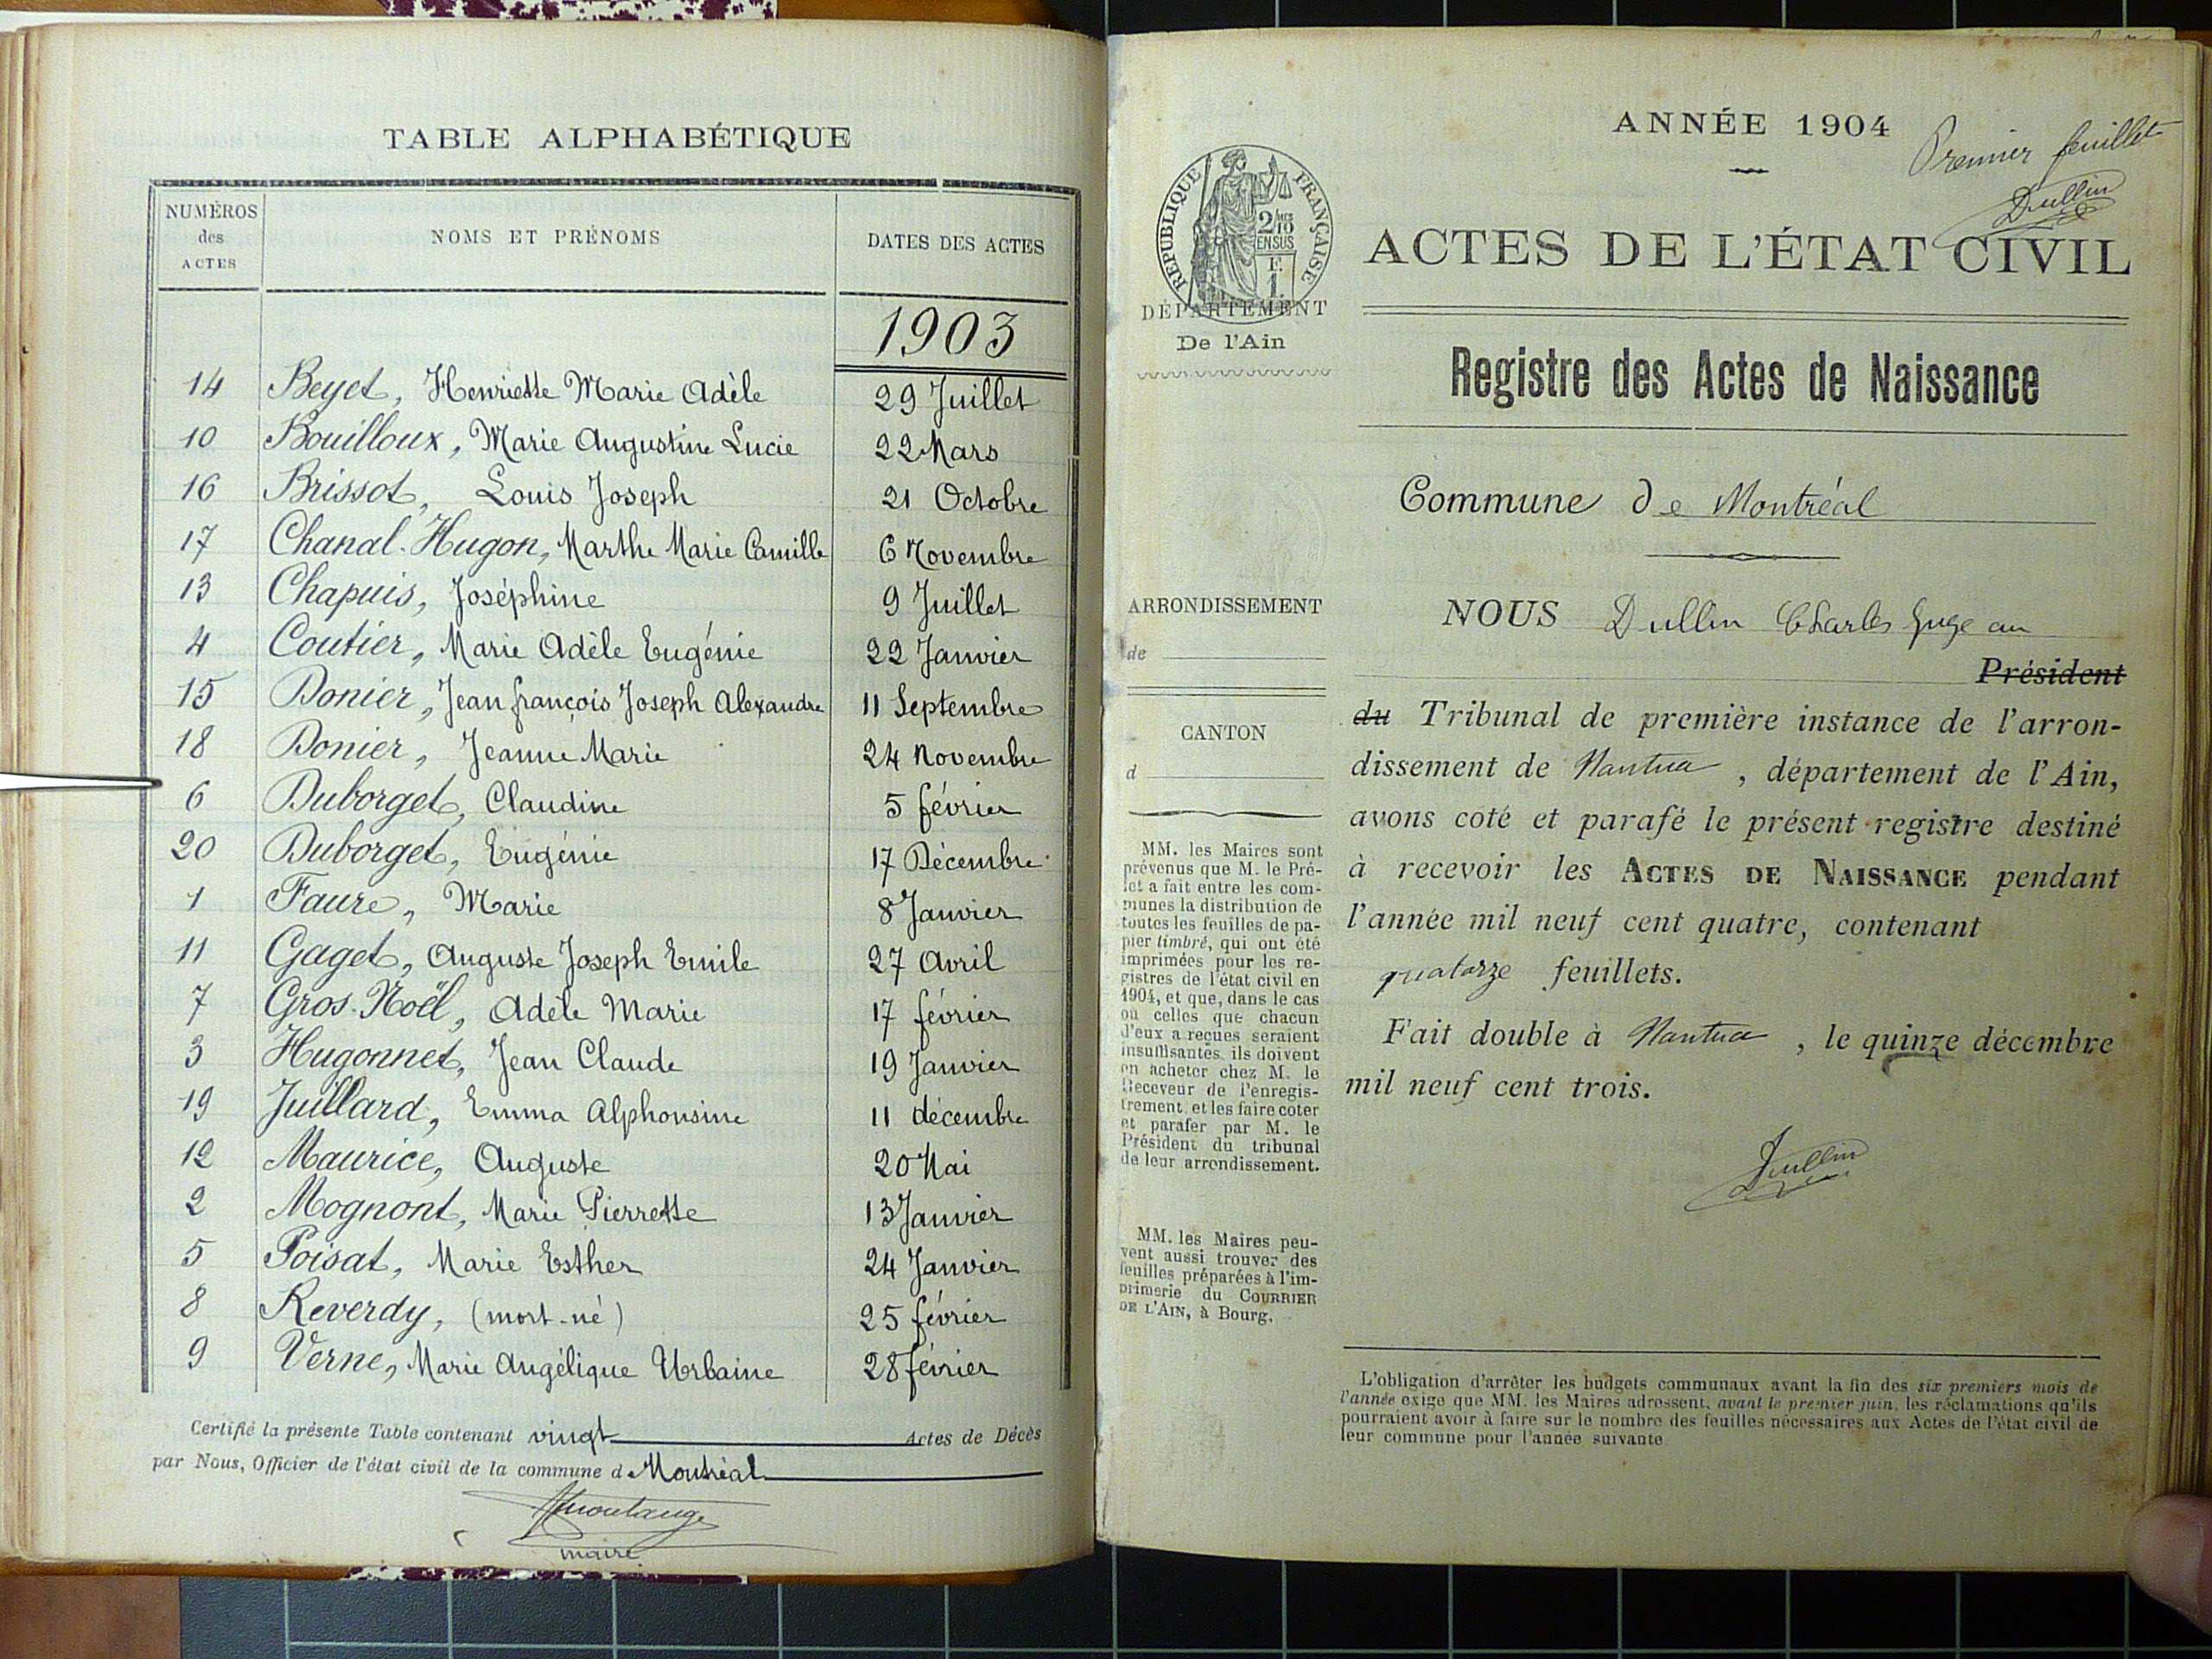 TABLE ALPHABÉTIQUE
NUMÉROS
des
ACTES
NOMS ET PRÉNOMS
DATES DES ACTES
1903
14 Beyet, Henriette Marie Adèle 29 Juillet
10 Bouilloux, Marie Augustine Lucie 22 Mars
16 Brissot, Louis Joseph 21 Octobre
17 Chanal-Hugon, Marthe Marie Camille 6 Novembre
13 Chapuis, Joséphine 9 Juillet
4 Coutier, Marie Adèle Eugénie 22 Janvier
15 Donier, Jean françois Joseph Alexandre 11 Septembre
18 Donier, Jeanne Marie 24 Novembre
6 Duborget, Claudine 5 février
20 Duborget, Eugénie 17 Décembre
1 Faure, Marie 8 Janvier
11 Gaget, Auguste Joseph Emile 27 Avril
7 Gros-Noël, Adèle Marie 17 février
3 Hugonnet, Jean Claude 19 Janvier
19 Juillard, Emma Alphonsine 11 décembre
12 Maurice, Auguste 20 Mai
2 Mognont, Marie Pierrette 13 Janvier
5 Poisat, Marie Esther 24 Janvier
8 Reverdy, (mort-né) 25 février
9 Verne, Marie Angélique Urbaine 28 février
Certifié la présente Table contenant vingt Actes de Décès
par Nous, Officier de l'état civil de la commune de Montréal
maire
ANNÉE 1904
Premier feuillet
Dullin
RÉPUBLIQUE FRANÇAISE
2/10 MES
EN SUS
F.
1.
ACTES DE L'ÉTAT CIVIL
DÉPARTEMENT
De l'Ain
Registre des Actes de Naissance
Commune de Montréal
ARRONDISSEMENT
de
CANTON
d
MM. les Maires sont
prévenus que M. le Pré-
fet a fait entre les com-
munes la distribution de
toutes les feuilles de pa-
pier timbré, qui ont été
imprimées pour les re-
gistres de l'état civil en
1904, et que, dans le cas
où celles que chacun
d'eux a reçues seraient
insuffisantes, ils doivent
en acheter chez M. le
Receveur de l'enregis-
trement, et les faire coter
et parafer par M. le
Président du tribunal
de leur arrondissement.
MM. les Maires peu-
vent aussi trouver des
feuilles préparées à l'im-
primerie du COURRIER
DE L'AIN, à Bourg.
NOUS Dullin Charles Juge au
Président
du Tribunal de première instance de l'arron-
dissement de Nantua, département de l'Ain,
avons coté et parafé le présent registre destiné
à recevoir les ACTES DE NAISSANCE pendant
l'année mil neuf cent quatre, contenant
quatorze feuillets.
Fait double à Nantua, le quinze décembre
mil neuf cent trois.
Dullin
L'obligation d'arrêter les budgets communaux avant la fin des six premiers mois de
l'année exige que MM. les Maires adressent, avant le premier juin, les réclamations qu'ils
pourraient avoir à faire sur le nombre des feuilles nécessaires aux Actes de l'état civil de
leur commune pour l'année suivante.